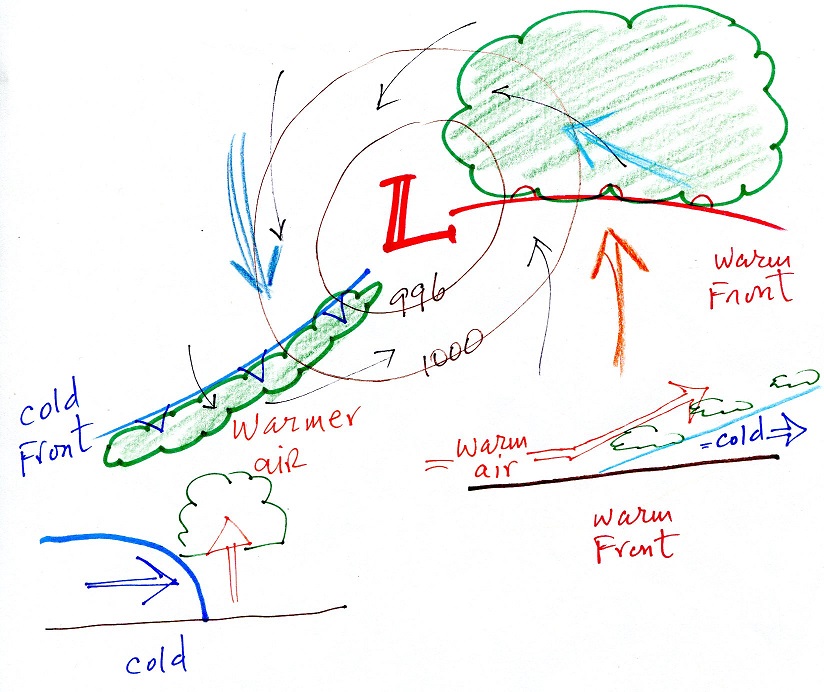 L
996
1000
warm
Front
cold
Front
Warmer
air
= warm
air
=cold
warm
Front
cold